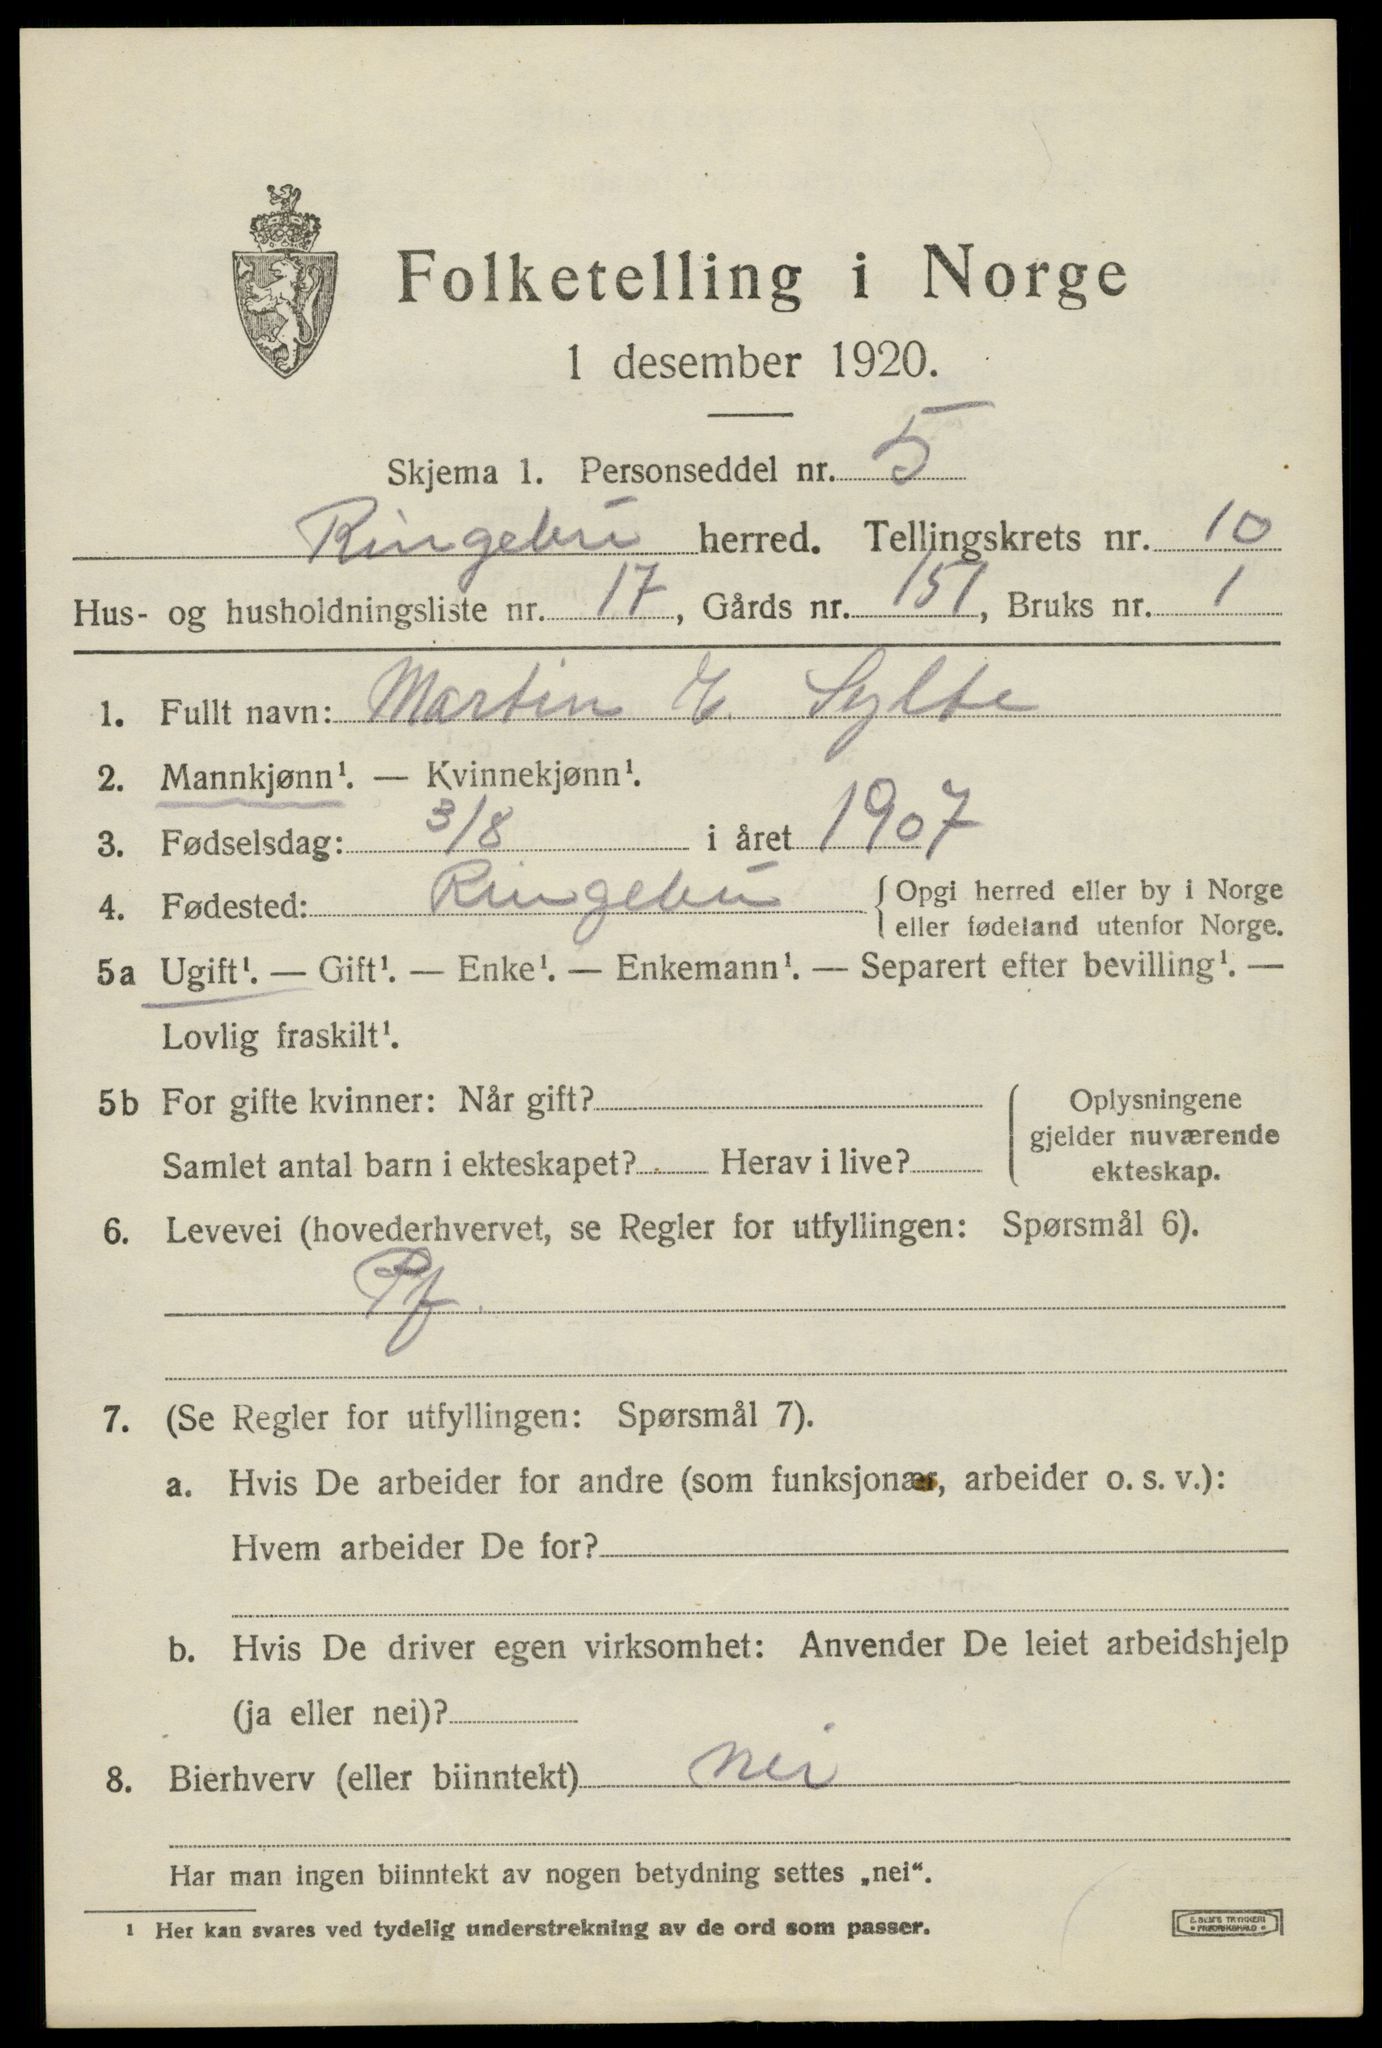 Folketelling i Norge
1 desember 1920.
Skjema 1. Personseddel nr. 5
Ringebu herred. Tellingskrets nr. 10
Hus- og husholdningsliste nr. 17, Gårds nr. 151, Bruks nr. 1
1. Fullt navn: Martin E. Sylte
2. Mannkjønn¹. — Kvinnekjønn¹.
3. Fødselsdag: 3/8 i året 1907
4. Fødested: Ringebu { Opgi herred eller by i Norge
eller fødeland utenfor Norge.
5a Ugift¹. — Gift¹. — Enke¹. — Enkemann¹. — Separert efter bevilling¹. —
Lovlig fraskilt¹.
5b For gifte kvinner: Når gift?
Samlet antal barn i ekteskapet? Herav i live?
Oplysningene
gjelder nuværende
ekteskap.
6. Levevei (hovederhvervet, se Regler for utfyllingen: Spørsmål 6).
Pf.
7. (Se Regler for utfyllingen: Spørsmål 7).
a. Hvis De arbeider for andre (som funksjonær, arbeider o. s. v.):
Hvem arbeider De for?
b. Hvis De driver egen virksomhet: Anvender De leiet arbeidshjelp
(ja eller nei)?
8. Bierhverv (eller biinntekt) nei
Har man ingen biinntekt av nogen betydning settes „nei“.
¹ Her kan svares ved tydelig understrekning av de ord som passer.
E. SEM'S TRYKKERI
• FREDRIKSHALD •